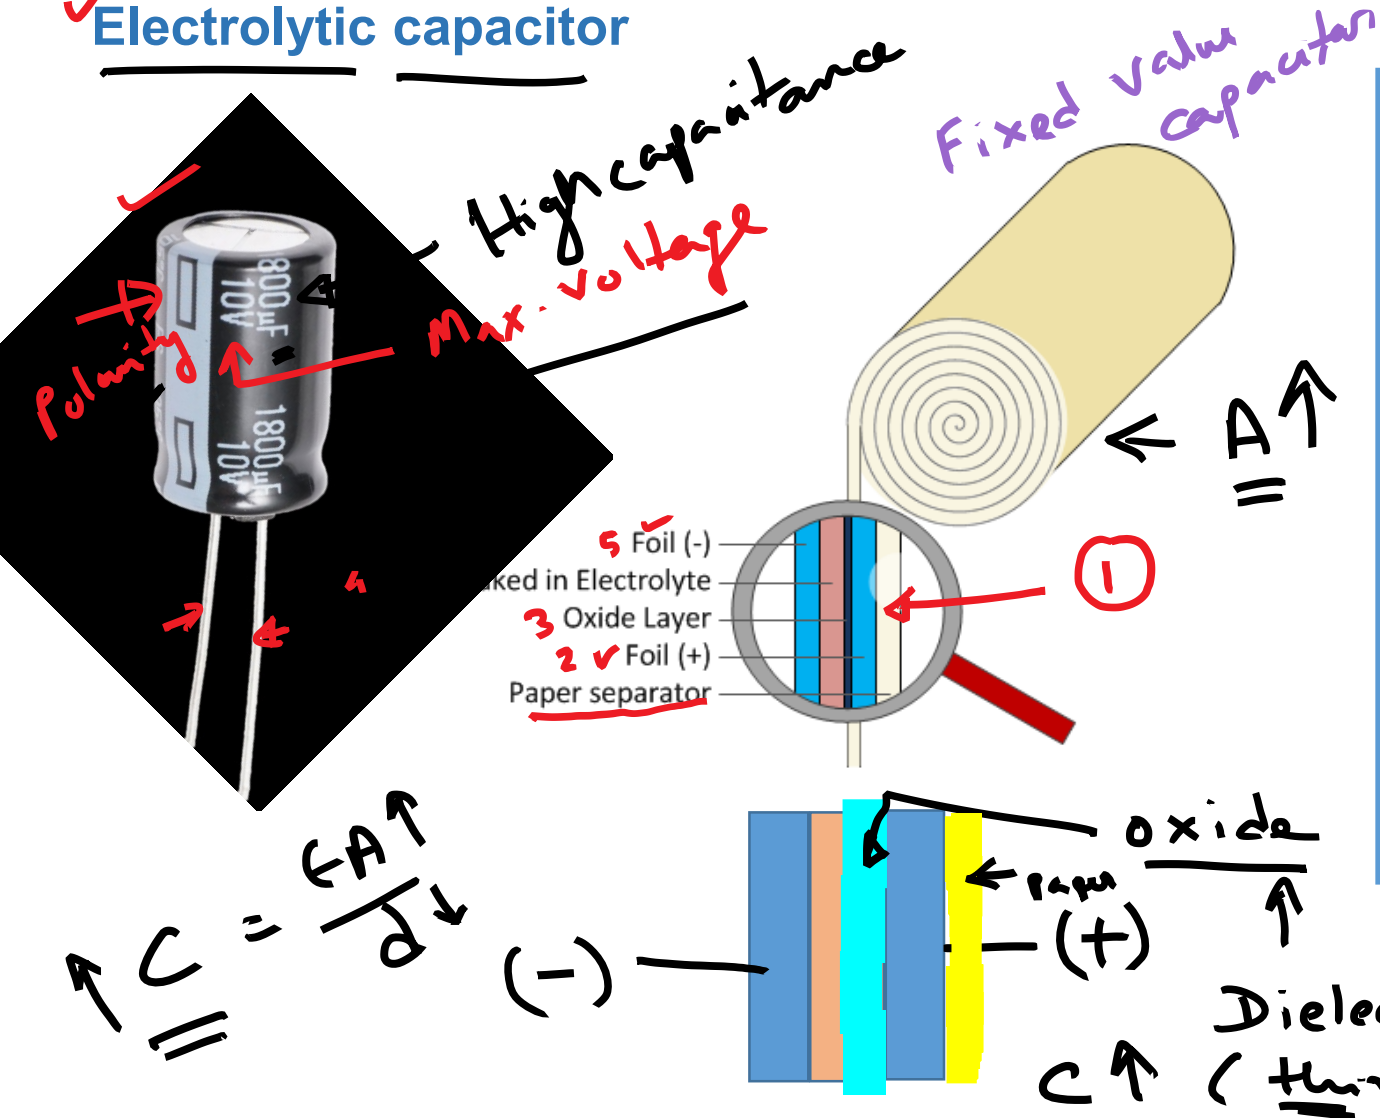 Electrolytic capacitor
Fixed value
capacitor
High capacitance
Max. voltage
Polarity
800µF
10V
1800µF
10V
A↑
5 Foil (-)
4
ked in Electrolyte
3 Oxide Layer
2 Foil (+)
Paper separator
1
↑ C = ϵA↑
d↓
(-)
oxide
paper
(+)
Dielec
C↑ (thi